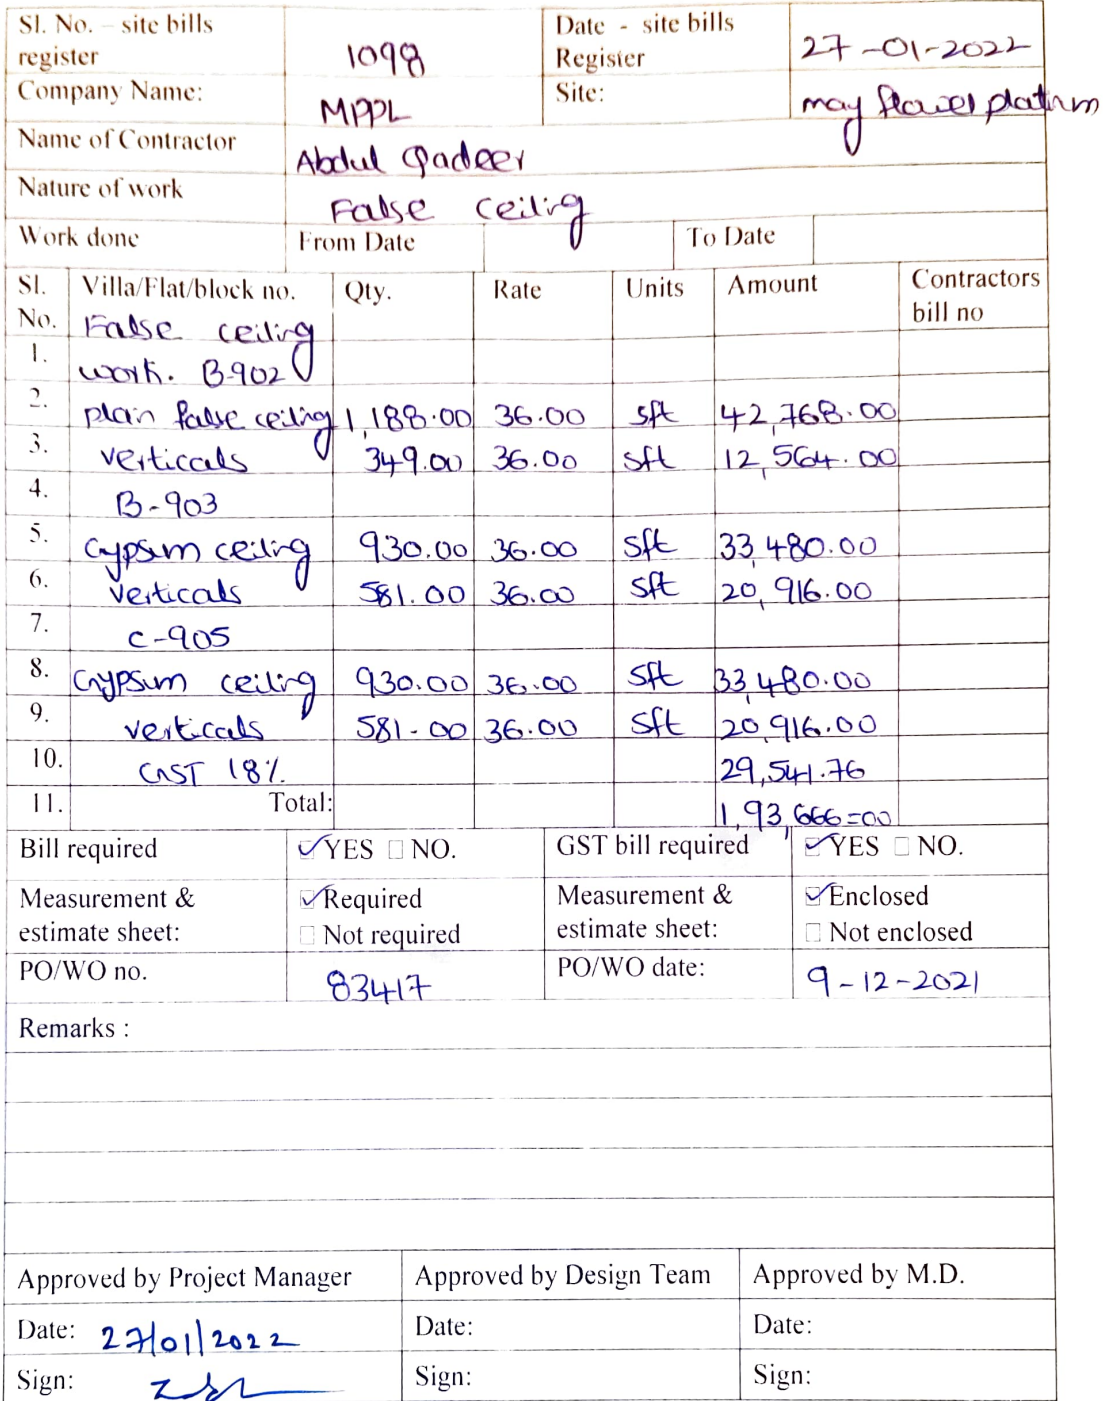 Sl. No. – site bills register 1098 Date - site bills Register 27-01-2022
Company Name: MPPL Site: may flower platinm
Name of Contractor Abdul Qadeer
Nature of work False ceiling
Work done From Date To Date
Sl. No. Villa/Flat/block no. Qty. Rate Units Amount Contractors bill no
False ceiling
1. work. B-902
2. plain false ceiling 1,188.00 36.00 sft 42,768.00
3. verticals 349.00 36.00 sft 12,564.00
4. B-903
5. Gypsum ceiling 930.00 36.00 sft 33,480.00
6. verticals 581.00 36.00 sft 20,916.00
7. C-905
8. Gypsum ceiling 930.00 36.00 sft 33,480.00
9. verticals 581-00 36.00 sft 20,916.00
10. GST 18% 29,541.76
11. Total: 1,93,666=00
Bill required ☑YES ☐ NO. GST bill required ☑YES ☐ NO.
Measurement & estimate sheet: ☑Required Measurement & estimate sheet: ☑Enclosed
☐ Not required ☐ Not enclosed
PO/WO no. 83417 PO/WO date: 9-12-2021
Remarks :
Approved by Project Manager Approved by Design Team Approved by M.D.
Date: 27/01/2022 Date: Date:
Sign: Sign: Sign: